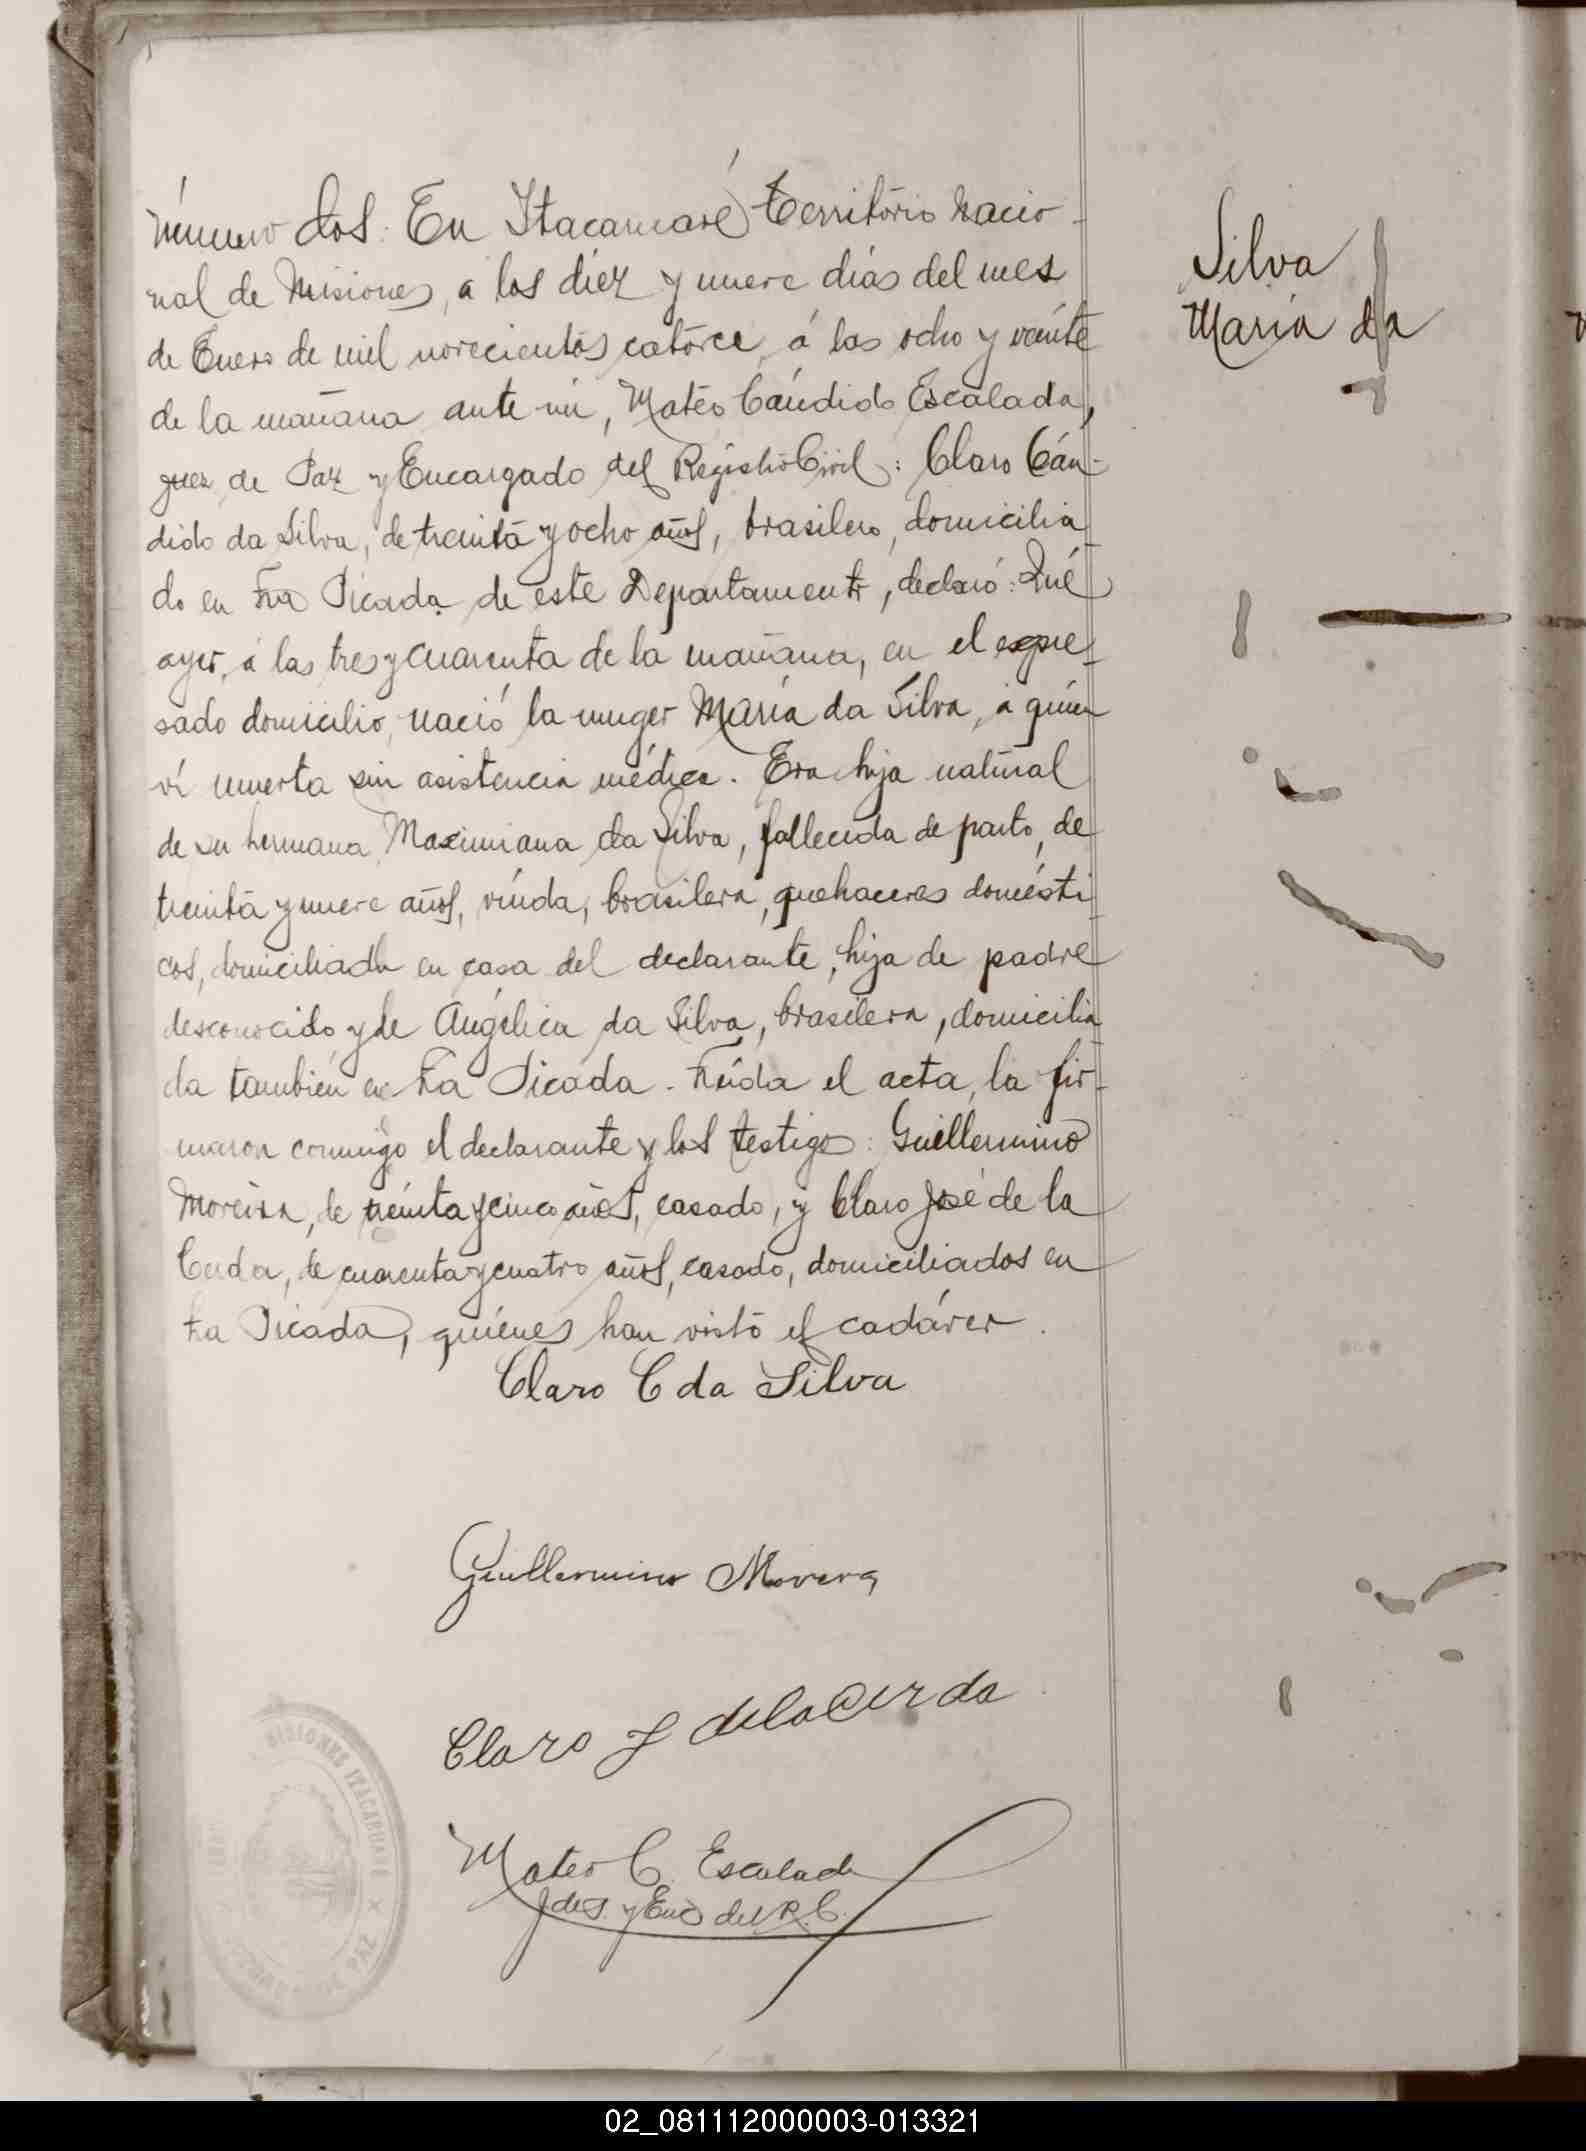 número dos: En Itacaruaré, territorio nacio-
nal de Misiones, a los diez y nueve dias del mes
de Enero de mil novecientos catorce, á las ocho y veinte
de la mañana ante mi, Mateo Cándido Escalada,
Juez de Paz y Encargado del Registro Civil: Claro Cán-
dido da Silva, de treinta y ocho años, brasilero, domicilia-
do en La Picada de este Departamento, declaró: Qué
ayer, á las tres y cuarenta de la mañana, en el expre-
sado domicilio, nació la muger María da Silva, á quien
ví muerta sin asistencia médica. Era hija natural
de su hermana Maximiana da Silva, fallecida de parto, de
treinta y nueve años, viuda, brasilera, quehaceres domésti-
cos, domiciliada en casa del declarante, hija de padre
desconocido y de Angélica da Silva, brasilera, domicilia-
da también en La Picada. Leida el acta, la fir-
maron conmigo el declarante y los testigos: Guillermino
Moreira, de treinta y cinco años, casado, y Claro José de la
Cerda, de cuarenta y cuatro años, casado, domiciliados en
La Picada, quiénes han visto el cadáver.
Silva
María da
Claro C da Silva
Guillermino Morera
Claro J delaCerda
Mateo C. Escalada
J de P. y Enc del R. C.
MISIONES ITACARUARE
JUZGADO DE PAZ
02_081112000003-013321